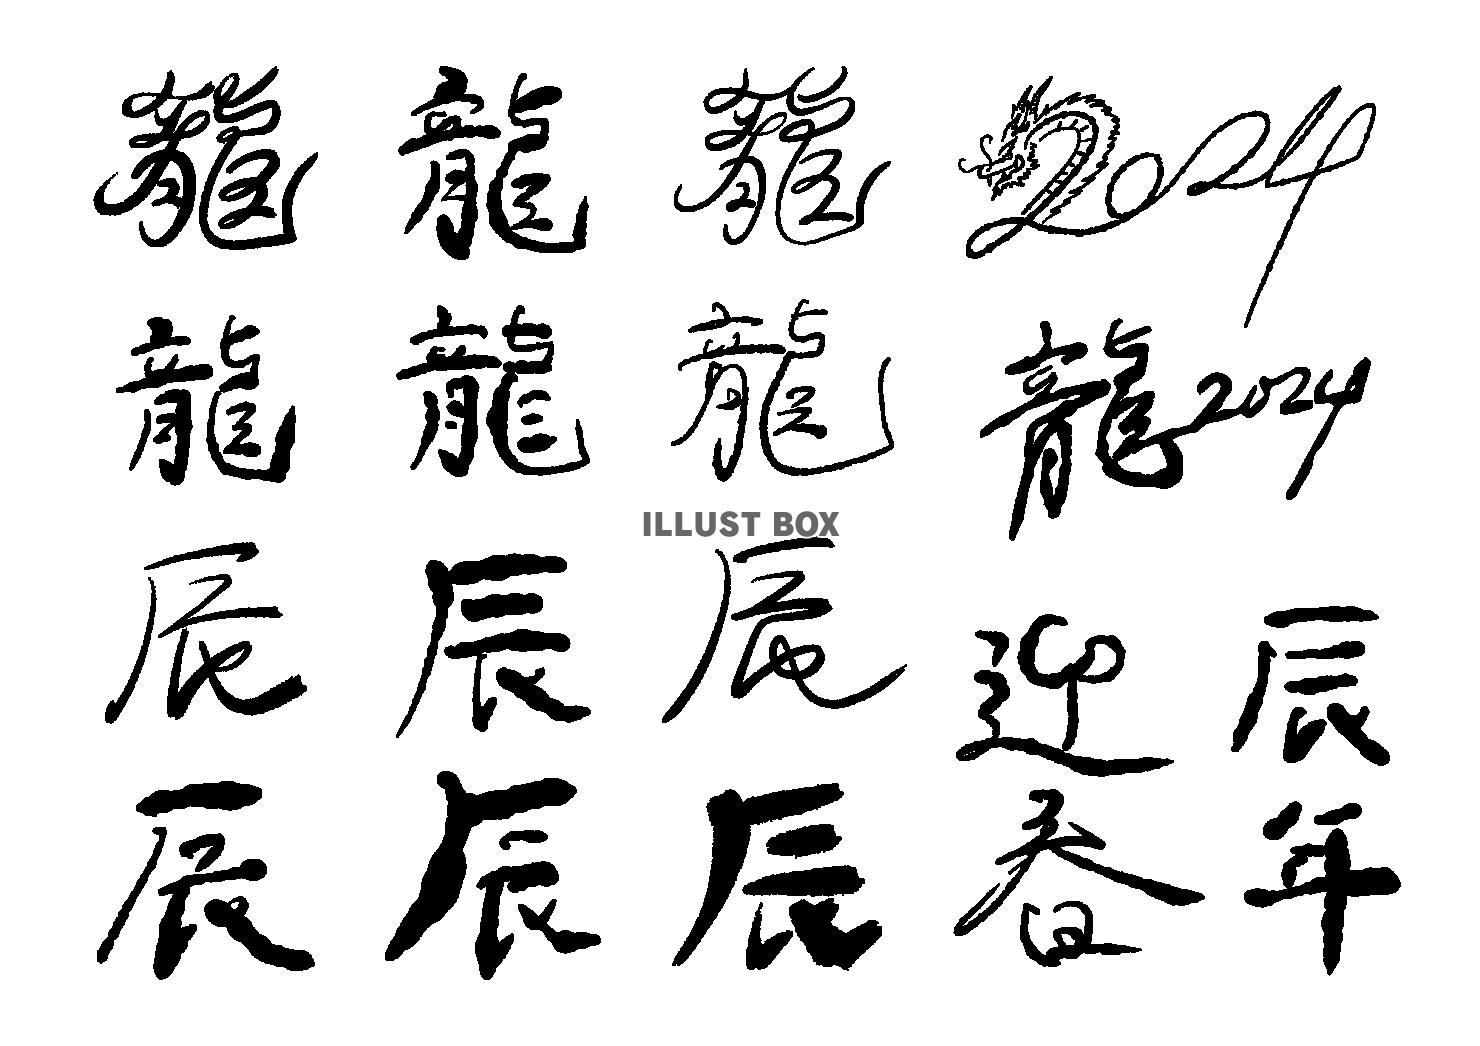 龍 龍 龍 2024
龍 龍 龍 龍2024
ILLUST BOX
辰 辰 辰 迎春 辰年
辰 辰 辰